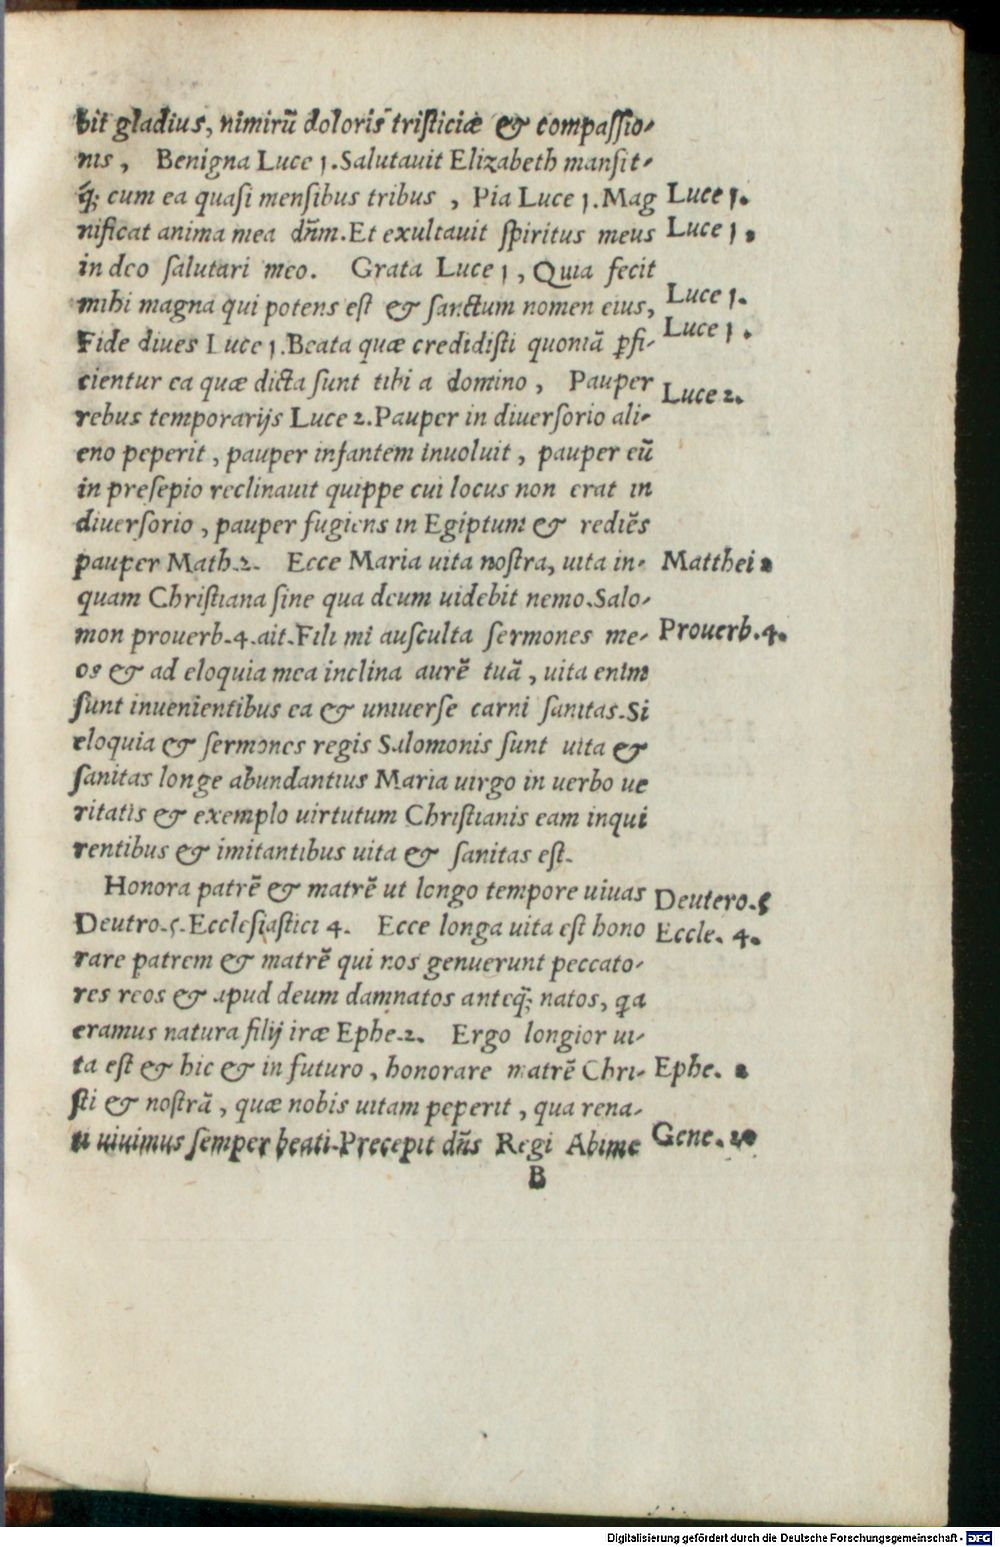 bit gladius, nimirũ doloris tristiciæ & compaſſio-
nis, Benigna Luce 1. Salutauit Elizabeth manſit-
q̃; cum ea quaſi menſibus tribus, Pia Luce 1. Mag Luce 1.
nificat anima mea dñm. Et exultauit ſpiritus meus Luce 1.
in deo ſalutari meo. Grata Luce 1, Quia fecit
mihi magna qui potens eſt & ſanctum nomen eius, Luce 1.
Fide diues Luce 1. Beata quæ credidiſti quoniã ꝑfi- Luce 1.
cientur ea quæ dicta ſunt tibi a domino, Pauper
rebus temporarijs Luce 2. Pauper in diuerſorio ali- Luce 2.
eno peperit, pauper infantem inuoluit, pauper eũ
in preſepio reclinauit quippe cui locus non erat in
diuerſorio, pauper fugiens in Egiptum & rediẽs
pauper Math. 2. Ecce Maria uita noſtra, uita in- Matthei 2
quam Chriſtiana ſine qua deum uidebit nemo. Salo-
mon prouerb. 4. ait. Fili mi auſculta ſermones me- Prouerb. 4.
os & ad eloquia mea inclina aurẽ tuã, uita enim
ſunt inuenientibus ea & uniuerſe carni ſanitas. Si
eloquia & ſermones regis Salomonis ſunt uita &
ſanitas longe abundantius Maria uirgo in uerbo ue
ritatis & exemplo uirtutum Chriſtianis eam inqui
rentibus & imitantibus uita & ſanitas eſt.
Honora patrẽ & matrẽ ut longo tempore uiuas Deutero. 5
Deutro. 5. Eccleſiaſtici 4. Ecce longa uita eſt hono Eccle. 4.
rare patrem & matrẽ qui nos genuerunt peccato-
res reos & apud deum damnatos anteq̃; natos, ꝗa
eramus natura filij iræ Ephe. 2. Ergo longior ui-
ta eſt & hic & in futuro, honorare matrẽ Chri- Ephe. 2
ſti & noſtrã, quæ nobis uitam peperit, qua rena-
ti uiuimus ſemper beati. Precepit dñs Regi Abime Gene. 20
B
Digitalisierung gefördert durch die Deutsche Forschungsgemeinschaft - DFG